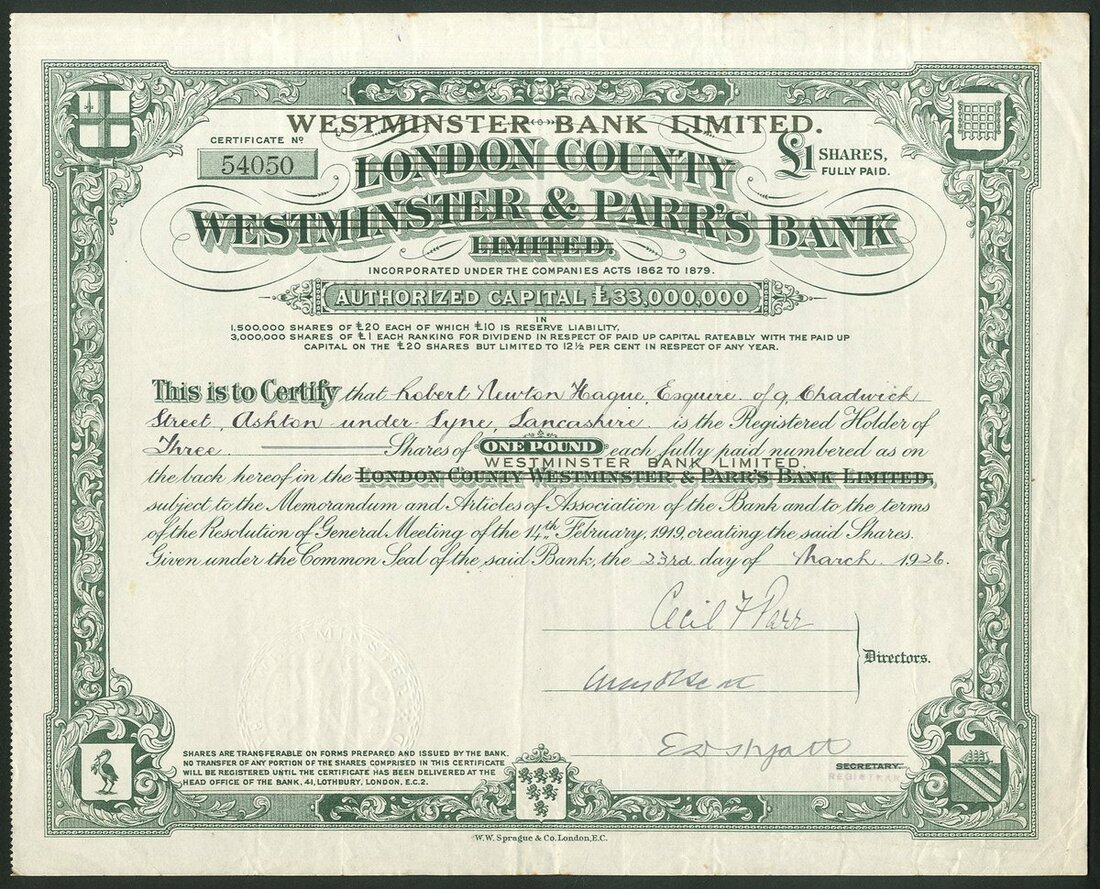 WESTMINSTER BANK LIMITED.
CERTIFICATE Nº
54050
LONDON COUNTY
£1 SHARES,
FULLY PAID.
WESTMINSTER & PARR'S BANK
LIMITED.
INCORPORATED UNDER THE COMPANIES ACTS 1862 TO 1879.
AUTHORIZED CAPITAL £33,000,000
IN
1,500,000 SHARES OF £20 EACH OF WHICH £10 IS RESERVE LIABILITY,
3,000,000 SHARES OF £1 EACH RANKING FOR DIVIDEND IN RESPECT OF PAID UP CAPITAL RATEABLY WITH THE PAID UP
CAPITAL ON THE £20 SHARES BUT LIMITED TO 12½ PER CENT IN RESPECT OF ANY YEAR.
This is to Certify that Robert Newton Hague, Esquire of 9, Chadwick
Street, Ashton under Lyne, Lancashire is the Registered Holder of
Three Shares of ONE POUND each fully paid numbered as on
WESTMINSTER BANK LIMITED.
the back hereof in the LONDON COUNTY WESTMINSTER & PARR'S BANK LIMITED,
subject to the Memorandum and Articles of Association of the Bank and to the terms
of the Resolution of General Meeting of the 14th February, 1919, creating the said Shares.
Given under the Common Seal of the said Bank, the 23rd day of March 1926.
Cecil F Parr
Directors.
SHARES ARE TRANSFERABLE ON FORMS PREPARED AND ISSUED BY THE BANK.
NO TRANSFER OF ANY PORTION OF THE SHARES COMPRISED IN THIS CERTIFICATE
WILL BE REGISTERED UNTIL THE CERTIFICATE HAS BEEN DELIVERED AT THE
HEAD OFFICE OF THE BANK, 41, LOTHBURY, LONDON. E.C.2.
SECRETARY.
REGISTRAR
W.W. Sprague & Co. London, E.C.